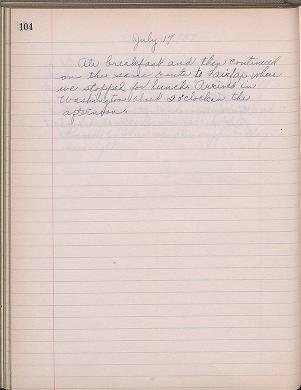 104
July 17
Ate breakfast and then continued
on the same route to Fairfax where
we stopped for lunch. Arrived in
Washington about 2 o'clock in the
afternoon.